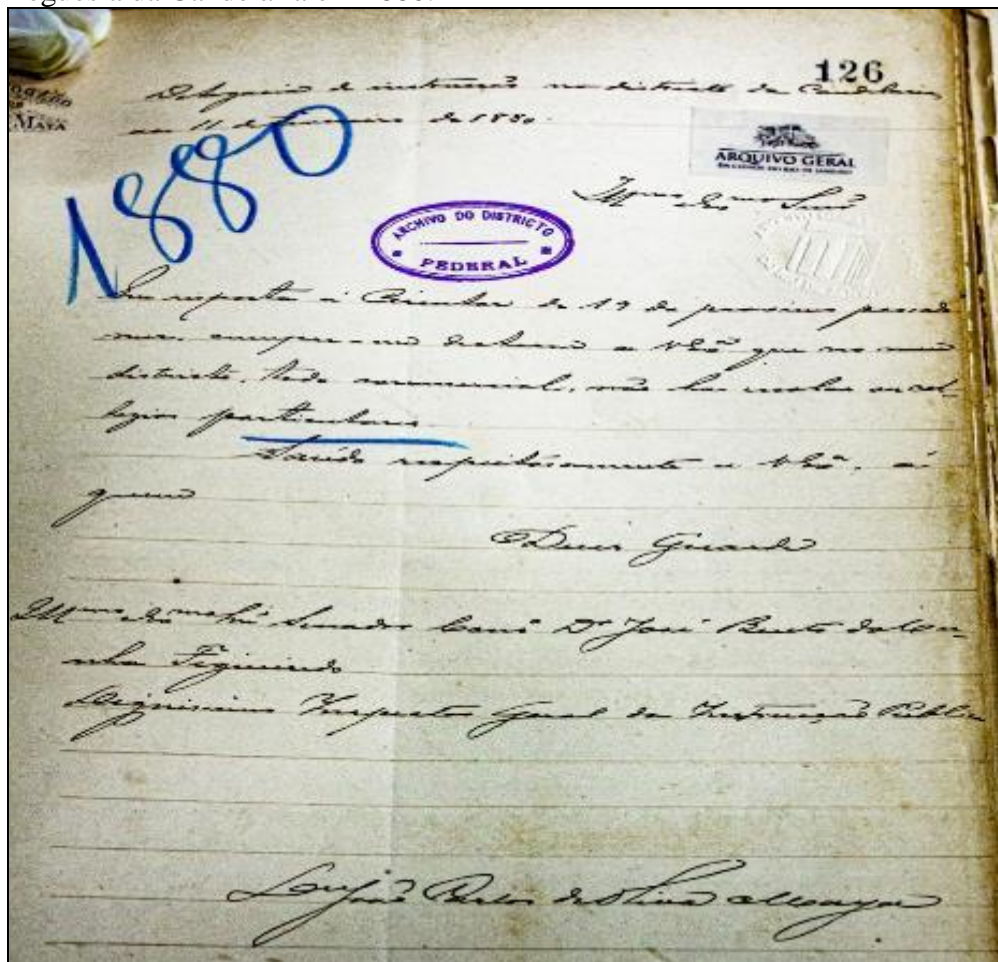 126
MAYA
Delegacia de instrucção no districto da Candelaria
em 11 de Fevereiro de 1880.
1880
ARQUIVO GERAL
DA CIDADE DO RIO DE JANEIRO
Illmo Exmo Senr
ARCHIVO DO DISTRICTO
FEDERAL
Em resposta á Circular de 19 de proximo passado
cumpre-me declarar a V Exa que no meu
districto, todo commercial, não ha escolas ou col-
legios particulares
Saúdo respeitosamente a V Exa, a
quem
Deus Guarde
Illmo Exmo Senador Cons Dr José Bento da Cu-
nha Figueiredo
Dignissimo Inspector Geral da Instrucção Publica
José Carlos